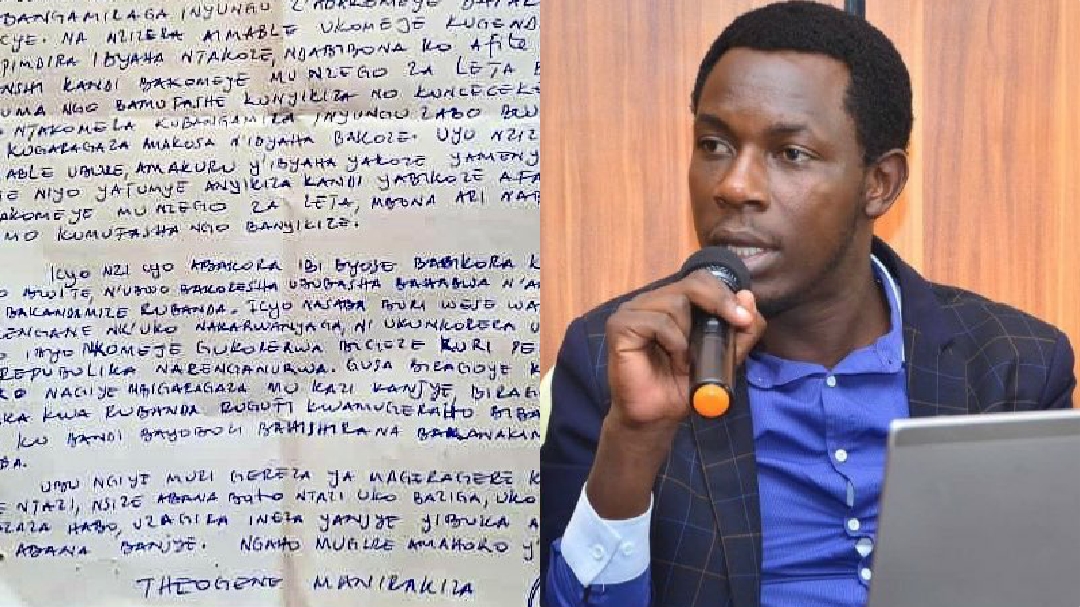 BANGAMIRAGA INYUNGU Z'ABAKOMEYE
CYE. NA NZIZERA AIMABLE UKOMEJE KUGEND
PIMBIRA IBYAHA NTAKOZE, NDABIBONA KO AFITE
NSHI KANDI BAKOMEYE MU NZEGO ZA LETA
UMA NGO BAMUFASHE KUNYIKIZA NO KUNCECEKE
NTAKOMEZA KUBANGAMIRA INYUNGU ZABO
KUGARAGAZA AMAKOSA N'IBYAHA BAKOZE. UYO NZIZ
ABLE UBWE, AMAKURU Y'IBYAHA YAKOZE YAMENY
E NIYO YATUMYE ANYIKIZA KANDI YABIKOZE AFA
AKOMEYE MU NZEGO ZA LETA, MBONA ARI NAB
MO KUMUFASHA NGO BANYIKIZE.
ICYO NZI CYO ABAKORA IBI BYOSE BABIKORA K
BWITE, N'UBWO BAKORESHA UBUBASHA BAHABWA N'A
BAKANDAMIZE RUBANDA. ICYO NASABA BURI WESE WA
RENGANE NK'UKO NAKARWANYAGA, NI UKUNKORERA U
IBYO NKOMEJE GUKORERWA BIGEZE KURI PE
REPUBULIKA NARENGANURWA. GUSA BIRAGOYE K
KO NAGIYE MBIGARAGAZA MU KAZI KANJYE BIRAG
KA KWA RUBANDA RUGUFI KWAMUGERAHO BIBA
KO BANDI BAYOBOZI BAMUHISHIRANA
BA.
UBU NGIYE MURI GEREZA YA MAGERAGERE K
E NTAZI, NSIZE ABANA BATO NTAZI UKO BAZIGA, UKO
AZAZA HABO, UZAGIRA INEZA YANJYE YIBUKA A
ABANA BANJYE. NGAHO MUGIRE AMAHORO Y'
THEOGENE MANIRAKIZA